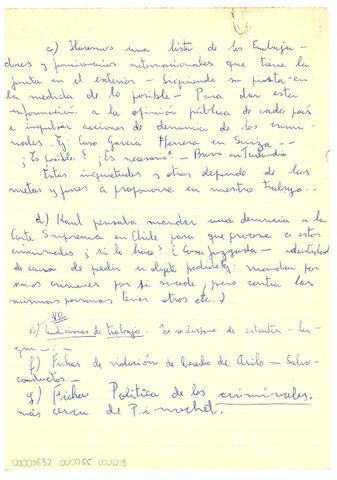 c) Haremos una lista de los Embaja-
dores y funcionarios internacionales que tiene la
junta en el exterior - Siguiendo su pista - en
la medida de lo posible - Para dar esta
información a la opinión pública de cada país
e impulsar acciones de denuncia de los crimi-
nales - Ej: Caso García Herrera en Suiza. -
¿Es posible? ¿Es necesario? - Bravo en Tailandia
Estas inquietudes y otras dependen de las
metas y fines a proponerse en nuestro trabajo..
d) Raul pensaba mandar una denuncia a la
Corte Suprema en Chile para que procese a estos
criminales ¿si lo hace? (Cosa Juzgada - identidad
de causa de pedir u objeto pedido; mandan por
unos crimenes por si sucede, pero contra las
mismas personas tener otros etc.)
e) Condiciones de trabajo. No se dispone de estatus - lu-
gar - : -
f) Fichas de violación de Derecho de Asilo - Salvo-
conductos. -
g) Fichar Política de los criminales.
más cerca de Pinochet.
0000632 000055 000013